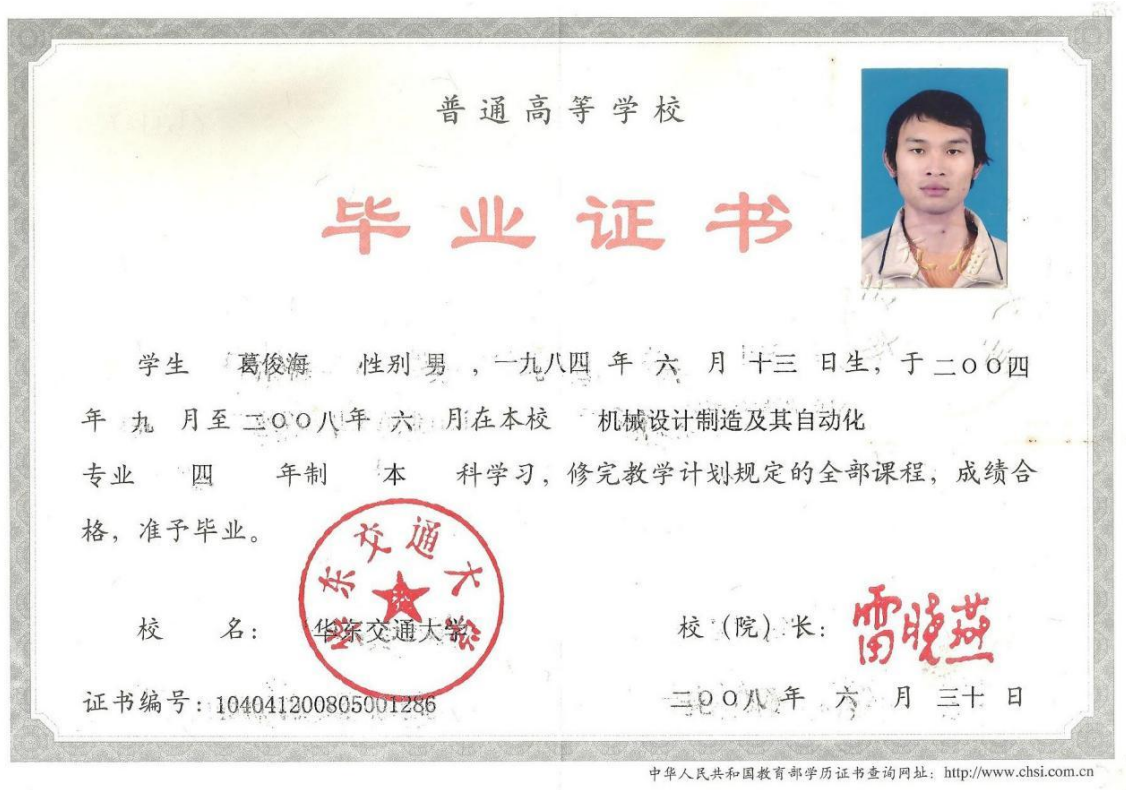 普通高等学校
毕业证书
学生 葛俊海 性别 男 ，一九八四 年 六 月 十三 日生，于 二〇〇四
年 九 月至 二〇〇八 年 六 月在本校 机械设计制造及其自动化
专业 四 年制 本 科学习，修完教学计划规定的全部课程，成绩合
格，准予毕业。
华东交通大学
校 名： 华东交通大学
校（院）长： 雷晓燕
证书编号：104041200805001286
二〇〇八 年 六 月 三十 日
中华人民共和国教育部学历证书查询网址：http://www.chsi.com.cn